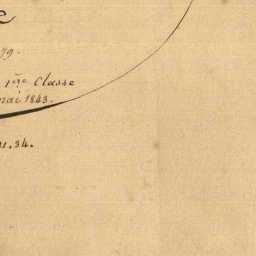 e
79.
1ère Classe
mai 1843.
34.